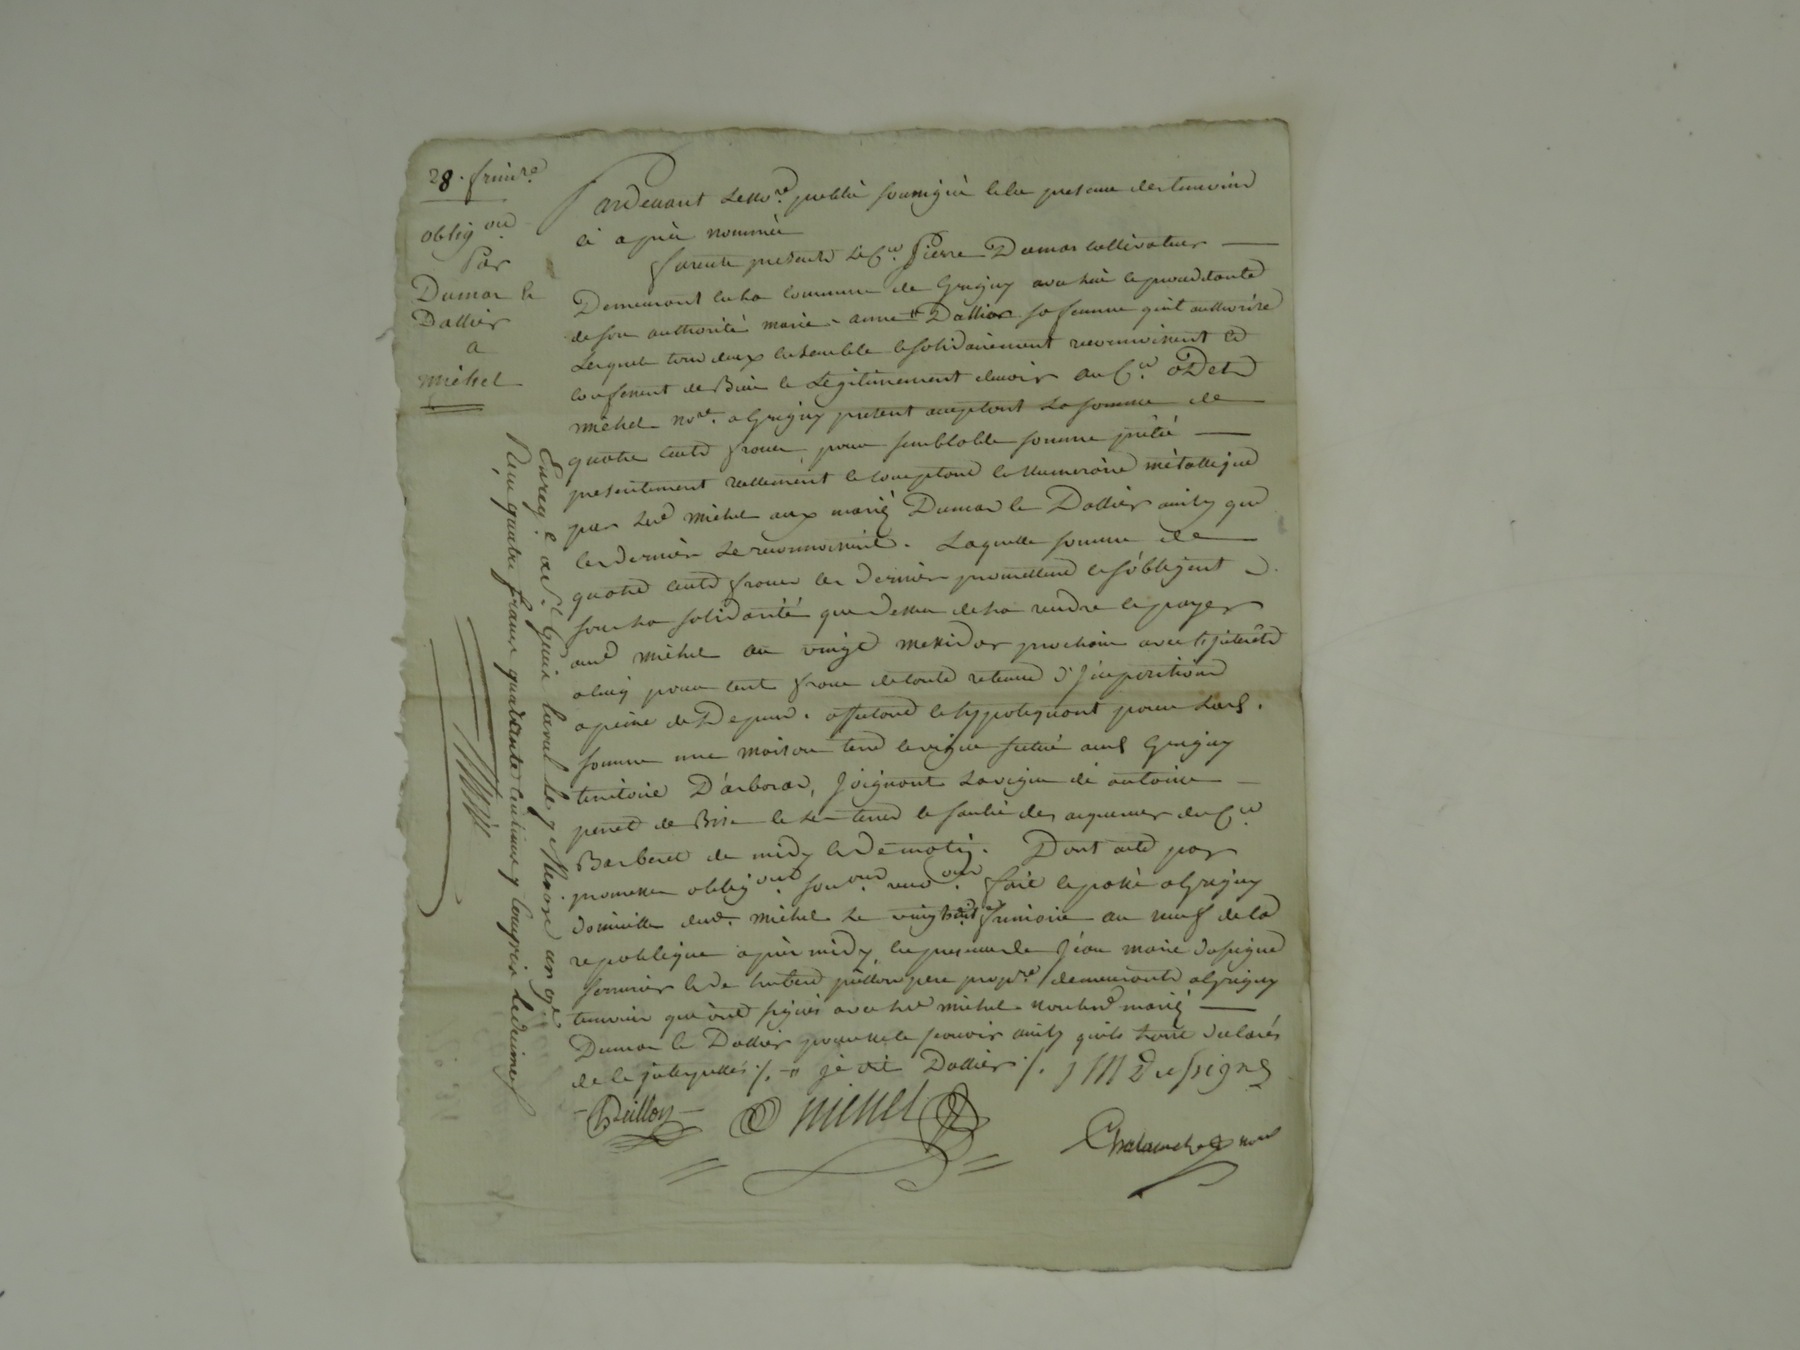 28. frimre
obligon
Par
Dumas &
Dallier
a
Michel
Pardevant Le nore. public soussigné & en presence des temoins
ci après nommés
furent présents Le Cen Pierre Dumas cultivateur
Demeurant en la commune de Grigny avec lui & procédante
de son authorité marie-anne # Dallier sa femme quil authorize
Lesquels tous deux ensemble & solidairement reconnoissent et
confessent de Bien & Légitimement devoir au Cen Odet
Michel nore. a Grigny présent acceptant La somme de
quatre cents francs, pour semblable somme prêtée
présentement réellement & comptant en Numeraire métallique
par Led Michel aux mariés Dumas & Dallier ainsy que
ces derniers Le reconnoissent. Laquelle somme de
quatre cents francs ces derniers promettent & s'obligent
sous la solidarité que dessus de la rendre & payer
aud Michel au vingt messidor prochain avec l'intérêt
a cinq pour cent franc de toute retenue d'imposition
a peine de Depens. affectant & hypotequant pour Lad.
somme une maison terre & vigne située aud Grigny
territoire D'arboras, joignant La vigne de antoine
perret de Bise & Les terres & des du Cen
Barberet de midy & de matin. Dont acte par
promesses obligons souons renoons fait & passé a Grigny
domicille dud. Michel Le vingt huit frimaire an neuf de la
republique après midy, en presence de jean marie dusigne
serrurier & de pere propre demeurants a Grigny
temoins qui ont signés avec led Michel non lesd mariés
Dumas & Dallier pour ne le scavoir ainsy quils l'ont déclarés
de ce interpellés ./. # je dis Dallier ./. J M Dusigne
O Michel
nore
Enregé a St Genis Laval Le 7 Nivose an 9e
Reçu quatre francs quarante centimes y compris Le decime